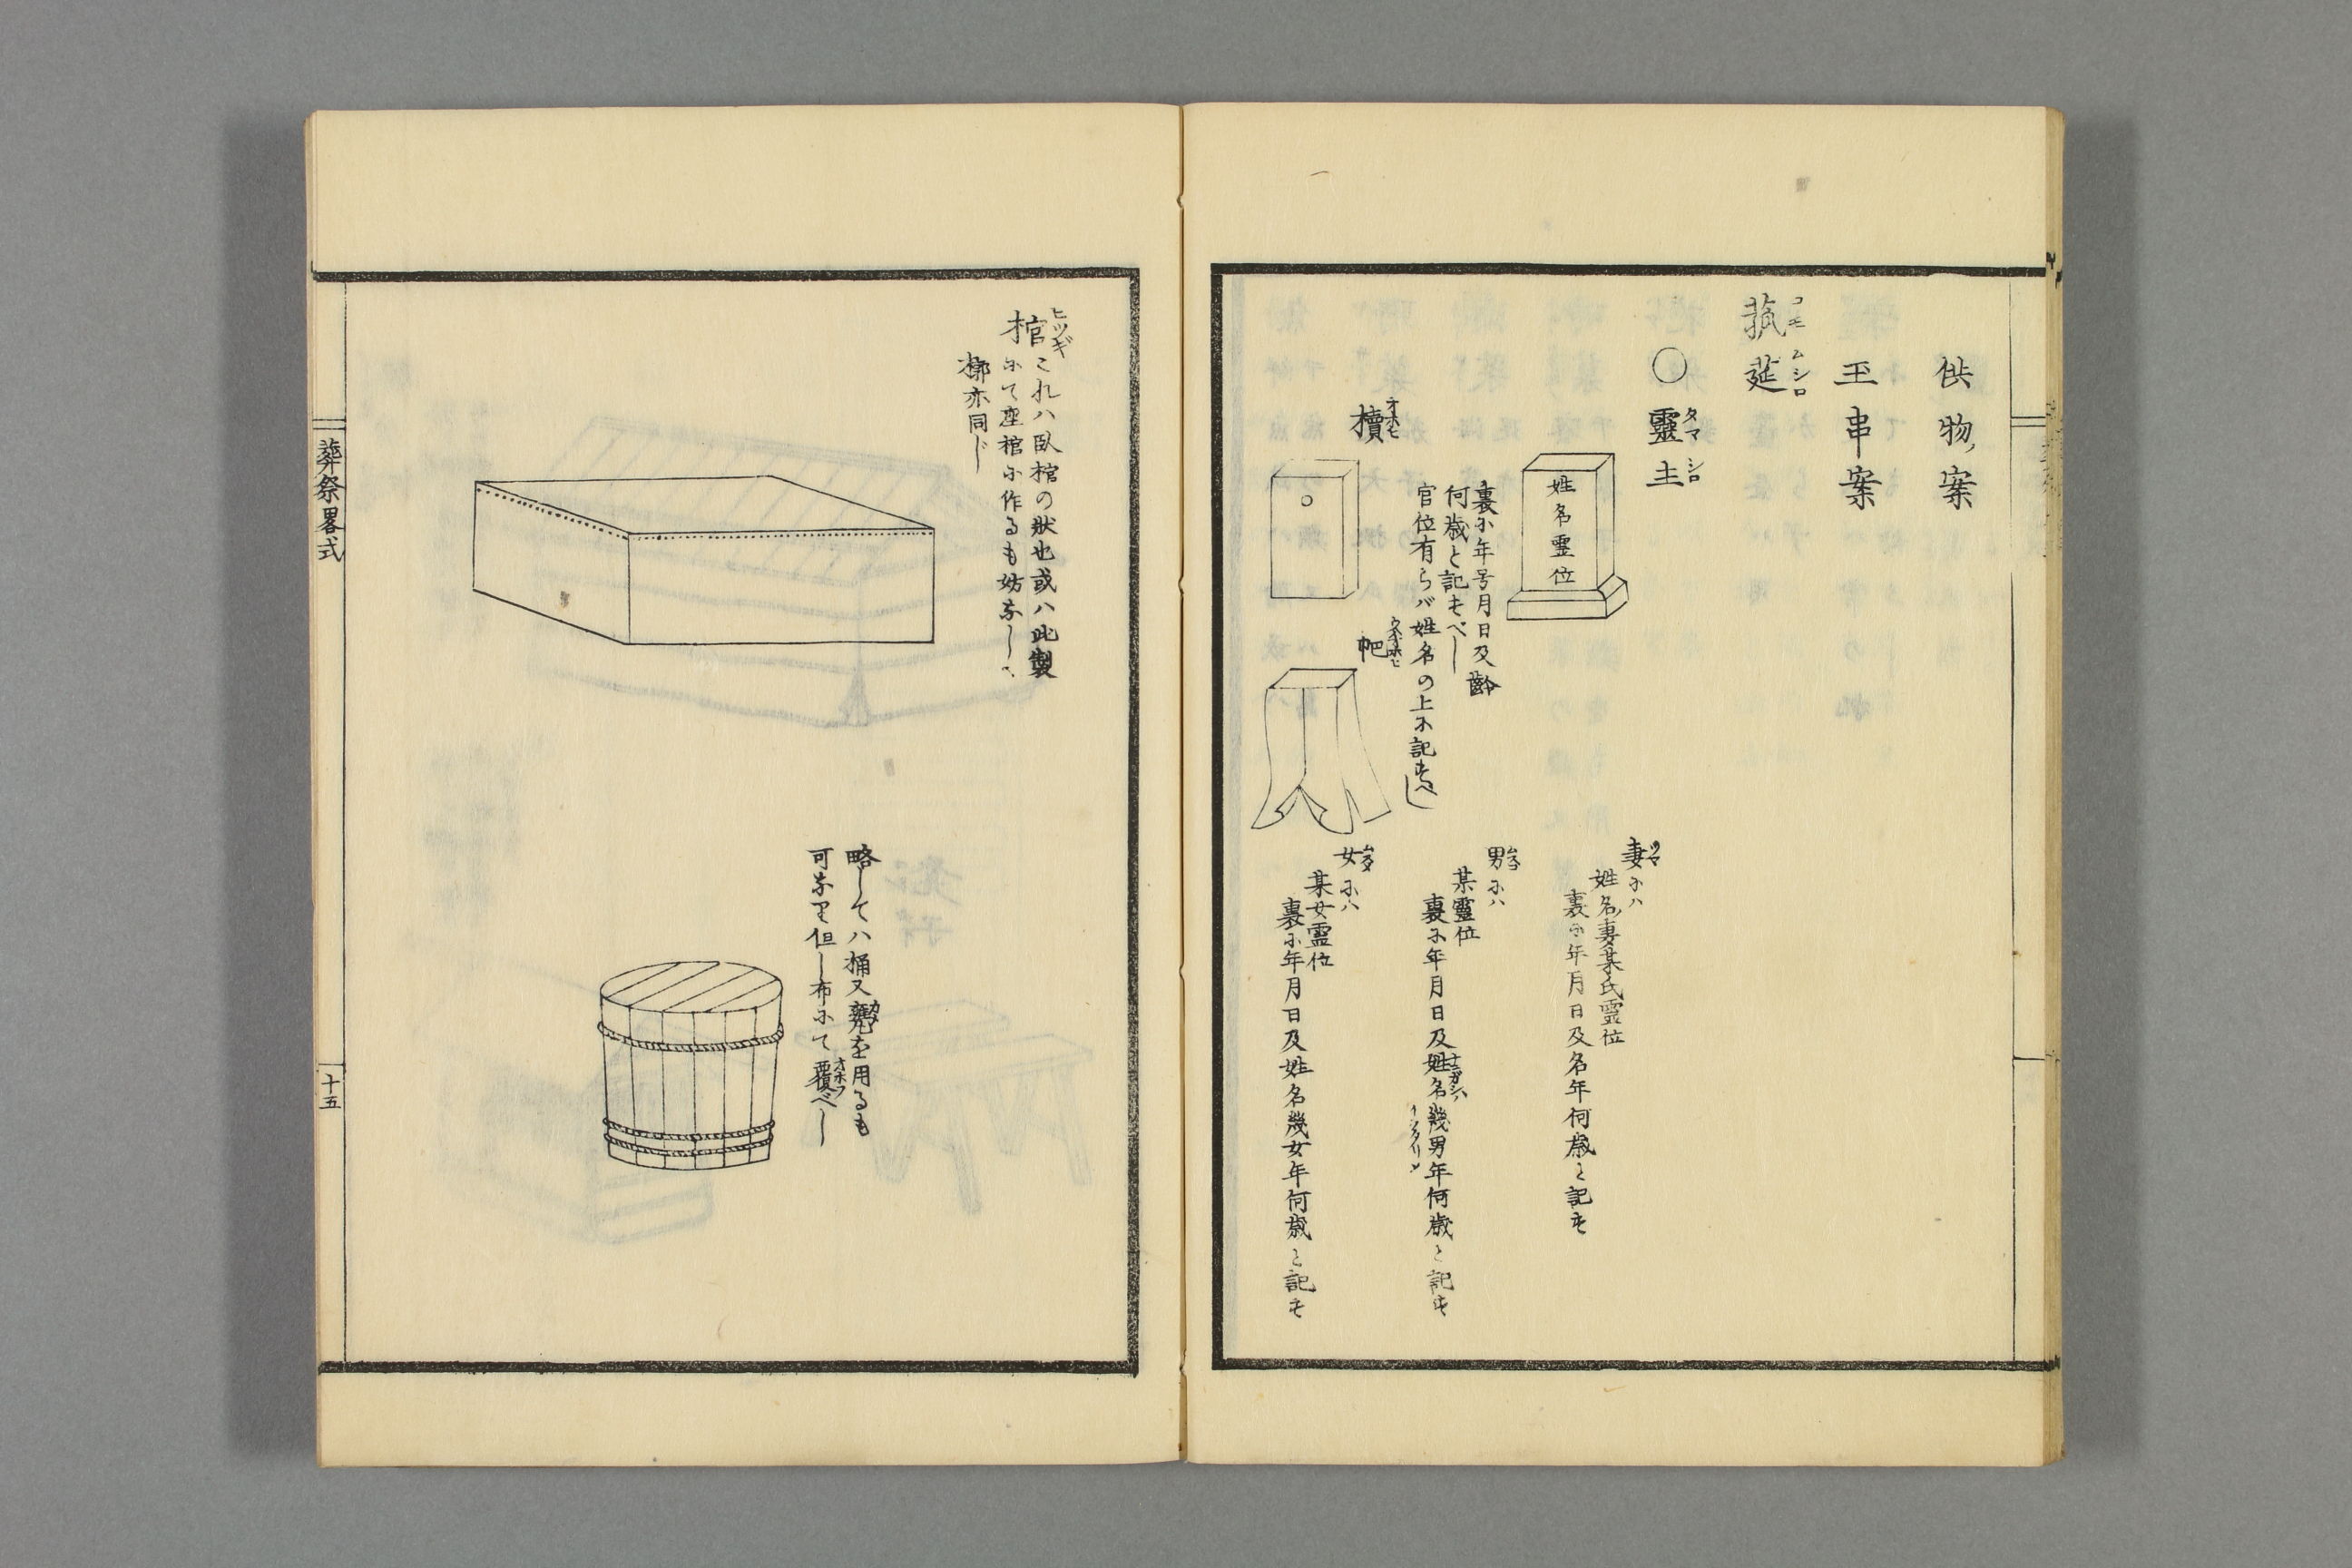 供物案
玉串案
菰莚
コモ ムシロ
○靈主
タマ シロ
姓名霊位
裏に年号月日及齢
何歳と記すべし
官位有らバ姓名の上に記すべし
櫝
オホヒ
帊
妻にハ
ツマ
姓名妻某氏霊位
裏に年月日及名年何歳と記す
男にハ
某靈位
裏に年月日及姓名幾男年何歳と記す
女にハ
某女霊位
裏に年月日及姓名幾女年何歳と記す
棺
ヒツギ
これハ臥棺の状也或ハ此製
にて座棺に作るも妨なし
槨亦同じ
略してハ桶又甕を用るも
可なり但し布にて覆べし
オホフ
葬祭畧式
十五